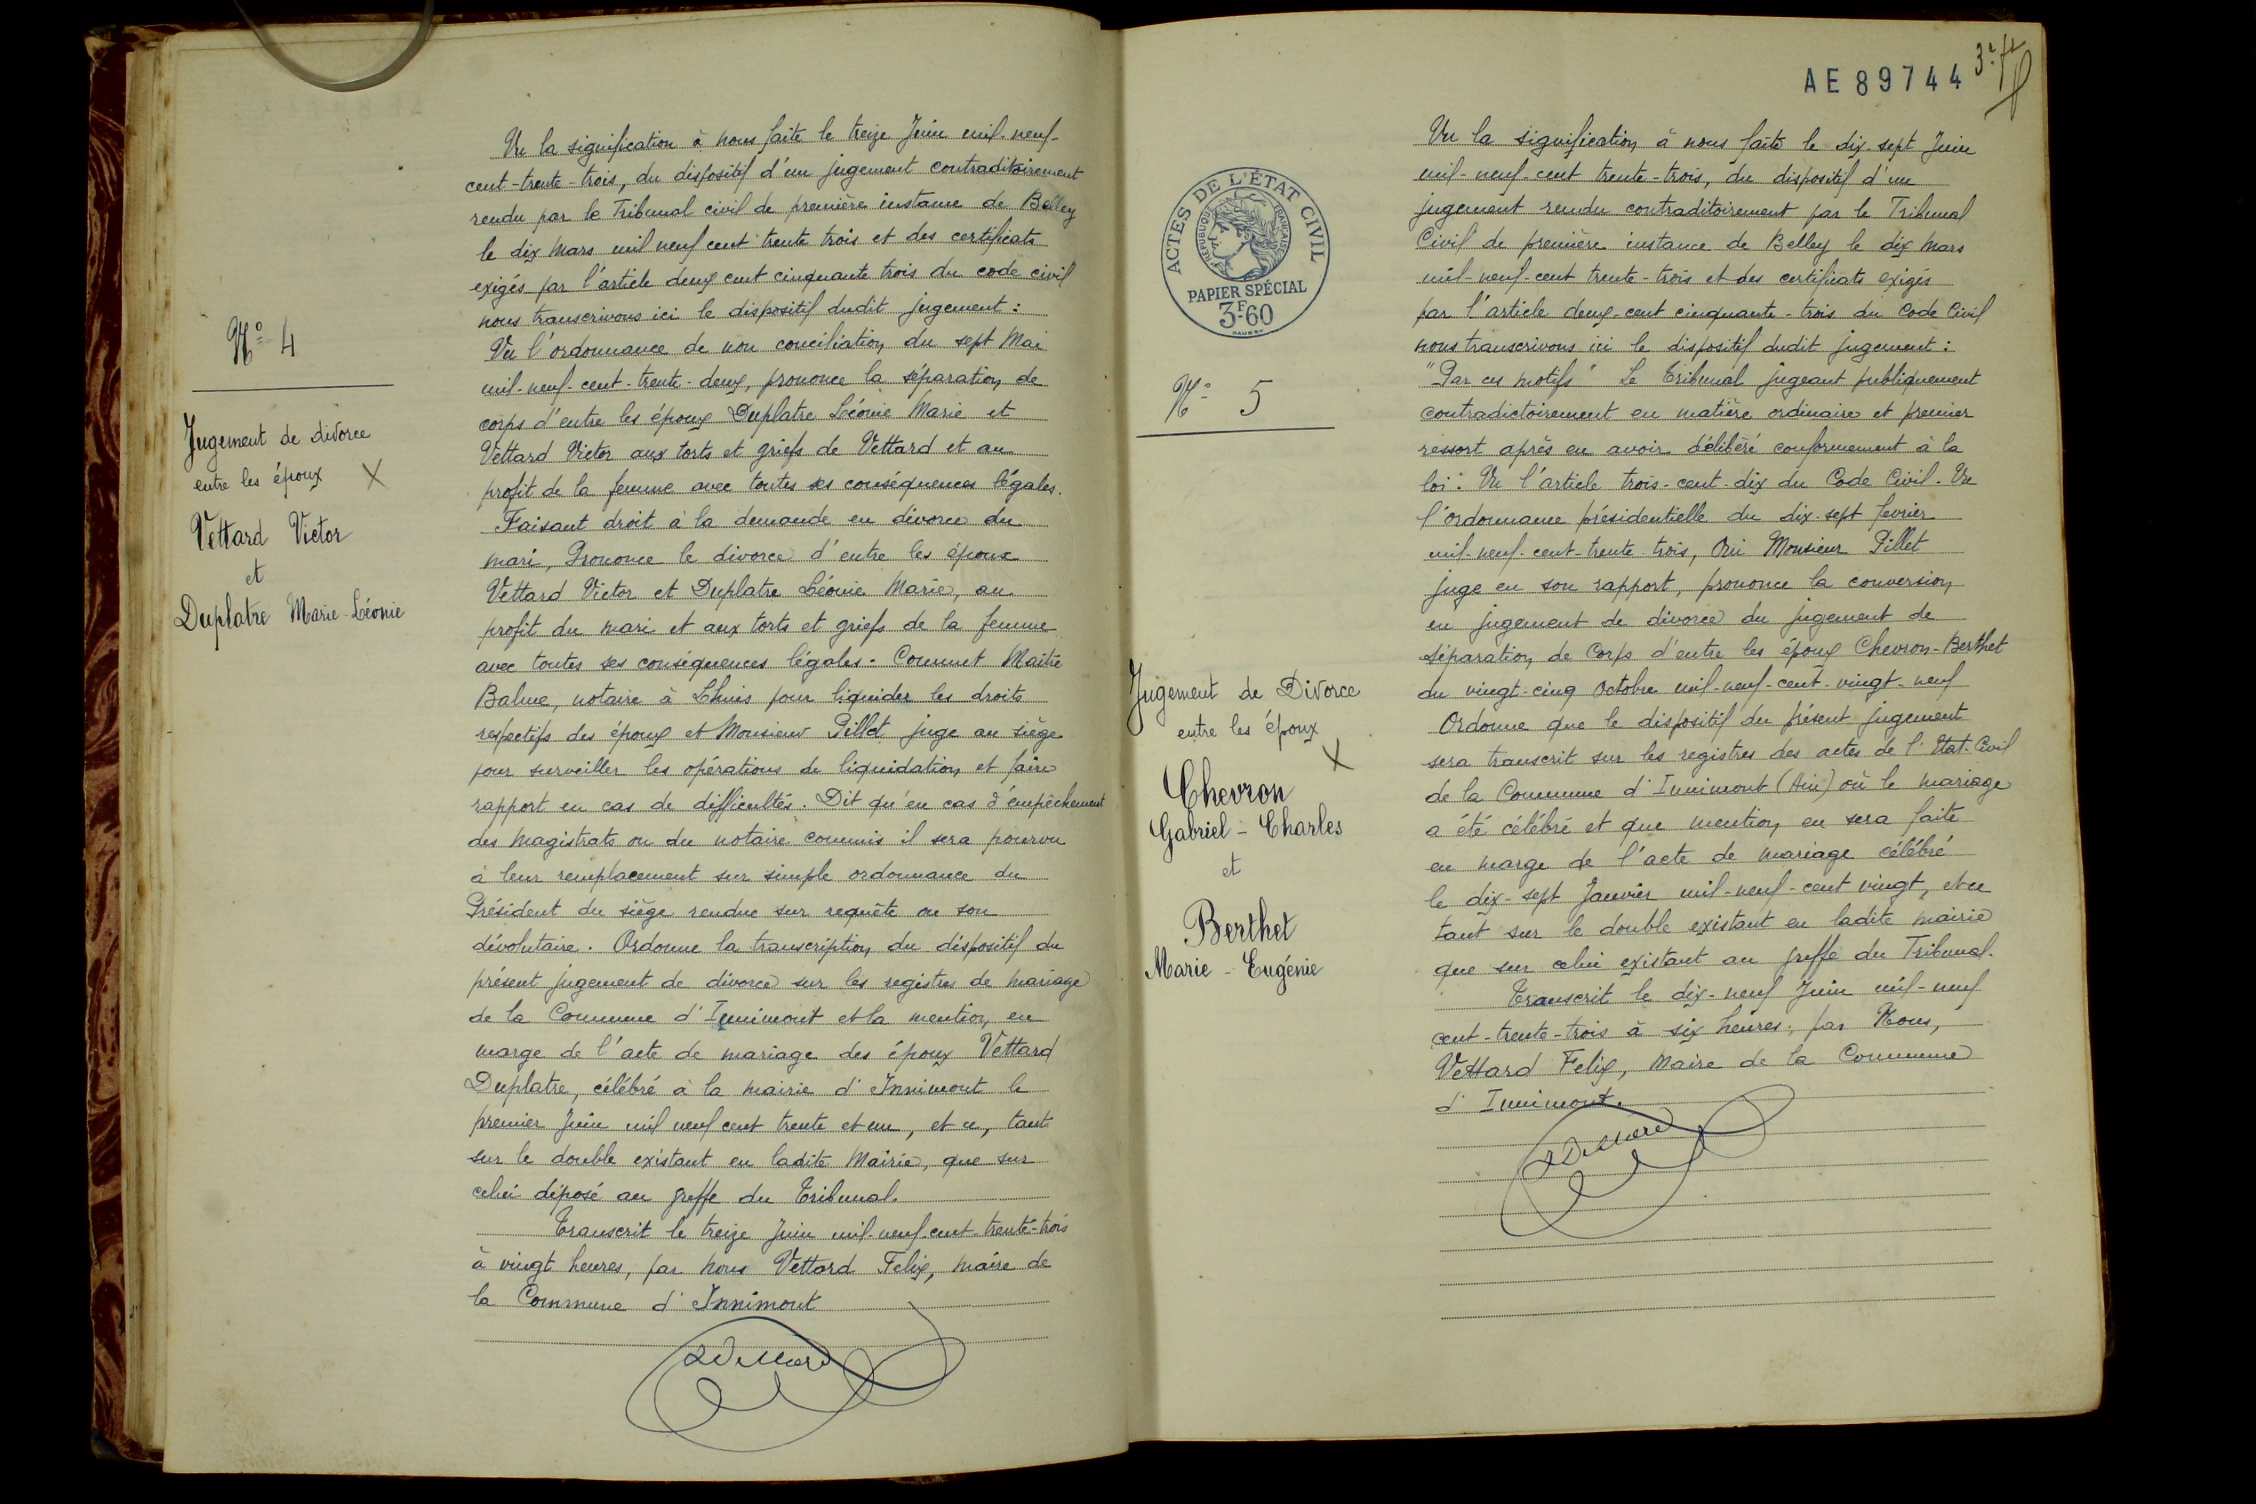 N° 4
Jugement de divorce
entre les époux X
Vettard Victor
et
Duplatre Marie-Léonie
Vu la signification à nous faite le treize Juin mil-neuf-
cent-trente-trois, du dispositif d'un jugement contraditoirement
rendu par le Tribunal civil de première instance de Belley
le dix Mars mil neuf cent trente trois et des certificats
exigés par l'article deux cent cinquante trois du code civil
nous transcrivons ici le dispositif dudit jugement :
Vu l'ordonnance de non conciliation du sept Mai
mil-neuf-cent-trente-deux, prononce la séparation de
corps d'entre les époux Duplatre Léonie Marie et
Vettard Victor aux torts et griefs de Vettard et au
profit de la femme avec toutes ses conséquences légales.
Faisant droit à la demande en divorce du
mari, Prononce le divorce d'entre les époux
Vettard Victor et Duplatre Léonie Marie, au
profit du mari et aux torts et griefs de la femme
avec toutes ses conséquences légales. Commet Maître
Balme, notaire à Lhuis pour liquider les droits
respectifs des époux et Monsieur Pillet juge au siège
pour surveiller les opérations de liquidation et faire
rapport en cas de difficultés. Dit qu'en cas d'empêchement
des magistrats ou du notaire commis il sera pourvu
à leur remplacement sur simple ordonnance du
Président du siège rendue sur requête ou son
dévolutaire. Ordonne la transcription du dispositif du
présent jugement de divorce sur les registres de mariage
de la Commune d'Innimont et la mention en
marge de l'acte de mariage des époux Vettard
Duplatre, célébré à la mairie d'Innimont le
premier Juin mil neuf cent trente et un, et ce, tant
sur le double existant en ladite Mairie, que sur
celui déposé au greffe du Tribunal.
Transcrit le treize Juin mil-neuf-cent-trente-trois
à vingt heures, par nous Vettard Felix, maire de
la Commune d'Innimont
AE 89744
ACTES DE L'ÉTAT CIVIL
RÉPUBLIQUE FRANÇAISE
PAPIER SPÉCIAL
3F.60
N° 5
Jugement de Divorce
entre les époux
X
Chevron
Gabriel - Charles
et
Berthet
Marie - Eugénie
Vu la signification à nous faite le dix-sept Juin
mil-neuf-cent trente-trois, du dispositif d'un
jugement rendu contraditoirement par le Tribunal
Civil de première instance de Belley le dix Mars
mil-neuf-cent trente-trois et des certificats exigés
par l'article deux-cent cinquante-trois du Code Civil
nous transcrivons ici le dispositif dudit jugement :
"Par ces motifs" Le Tribunal jugeant publiquement
contradictoirement en matière ordinaire et premier
ressort après en avoir délibéré conformement à la
loi : Vu l'article trois-cent-dix du Code Civil. Vu
l'ordonnance présidentielle du dix-sept fevrier
mil-neuf-cent-trente-trois, Oui Monsieur Pillet
juge en son rapport, prononce la conversion
en jugement de divorce du jugement de
séparation de Corps d'entre les époux Chevron-Berthet
du vingt-cinq Octobre mil-neuf-cent-vingt-neuf
Ordonne que le dispositif du présent jugement
sera transcrit sur les registres des actes de l'Etat-Civil
de la Commune d'Innimont (Ain) où le mariage
a été célébré et que mention en sera faite
en marge de l'acte de mariage célébré
le dix-sept Janvier mil-neuf-cent vingt, et ce
tant sur le double existant en ladite mairie
que sur celui existant au greffe du Tribunal.
Transcrit le dix-neuf Juin mil-neuf
cent-trente-trois à six heures, par Nous,
Vettard Felix, Maire de la Commune
d'Innimont.